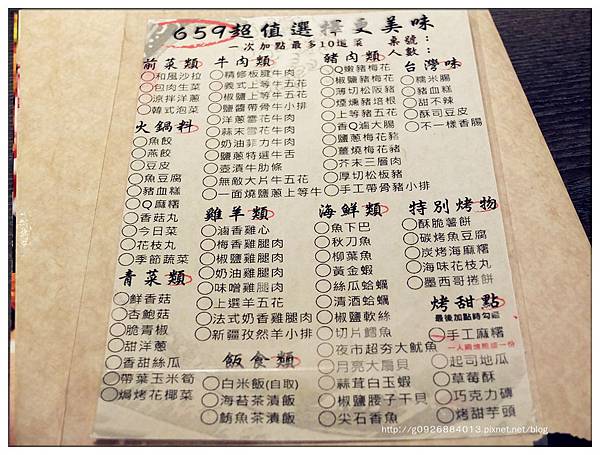 659超值選擇更美味
一次加點最多10道菜
桌號：
人數：
前菜類
和風沙拉
包肉生菜
涼拌洋蔥
韓式泡菜
火鍋料
魚餃
燕餃
豆皮
魚豆腐
豬血糕
Q麻糬
香菇丸
今日菜
花枝丸
季節蔬菜
青菜類
鮮香菇
杏鮑菇
脆青椒
甜洋蔥
香甜絲瓜
帶葉玉米筍
焗烤花椰菜
牛肉類
精修板腱牛肉
義式上等牛五花
椒鹽上等牛五花
鹽醬帶骨牛小排
洋蔥雪花牛肉
蒜末雪花牛肉
奶油菲力牛肉
鹽蔥特選牛舌
壺漬牛肋條
無敵大片牛五花
一面燒鹽蔥上等牛
雞羊類
滷香雞心
梅香雞腿肉
椒鹽雞腿肉
奶油雞腿肉
味噌雞腿肉
上選羊五花
法式奶香雞腿肉
新疆孜然羊小排
飯食類
白米飯(自取)
海苔茶漬飯
魩魚茶漬飯
豬肉類
Q嫩豬梅花
椒鹽豬梅花
薄切松阪豬
煙燻豬培根
上等豬五花
香Q滷大腸
鹽蔥梅花豬
薑燒梅花豬
芥末三層肉
厚切松板豬
手工帶骨豬小排
海鮮類
魚下巴
秋刀魚
柳葉魚
黃金蝦
絲瓜蛤蠣
清酒蛤蠣
椒鹽軟絲
切片鱈魚
夜市超夯大魷魚
月亮大扇貝
蒜茸白玉蝦
椒鹽腰子干貝
尖石香魚
台灣味
糯米腸
豬血糕
甜不辣
酥司豆皮
不一樣香腸
特別烤物
酥脆薯餅
碳烤魚豆腐
炭烤海麻糬
海味花枝丸
墨西哥捲餅
烤甜點
最後加點時勾選
手工麻糬
起司地瓜
草莓酥
巧克力磚
烤甜芋頭
http://g0926884013.pixnet.net/blog